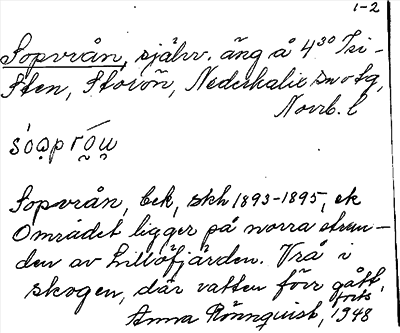 1-2
Sopvrån, självv. äng å 4³⁰ Tri-
sten, Storön, Nederkalix sn o tg,
Norrb. l
sóaprǫ́u
Sopvrån, bek, skh 1893-1895, ek
Området ligger på norra stran-
den av Lillöfjärden. Vrå i
skogen, där vatten förr gått,
forts
Anna Rönnquist, 1948